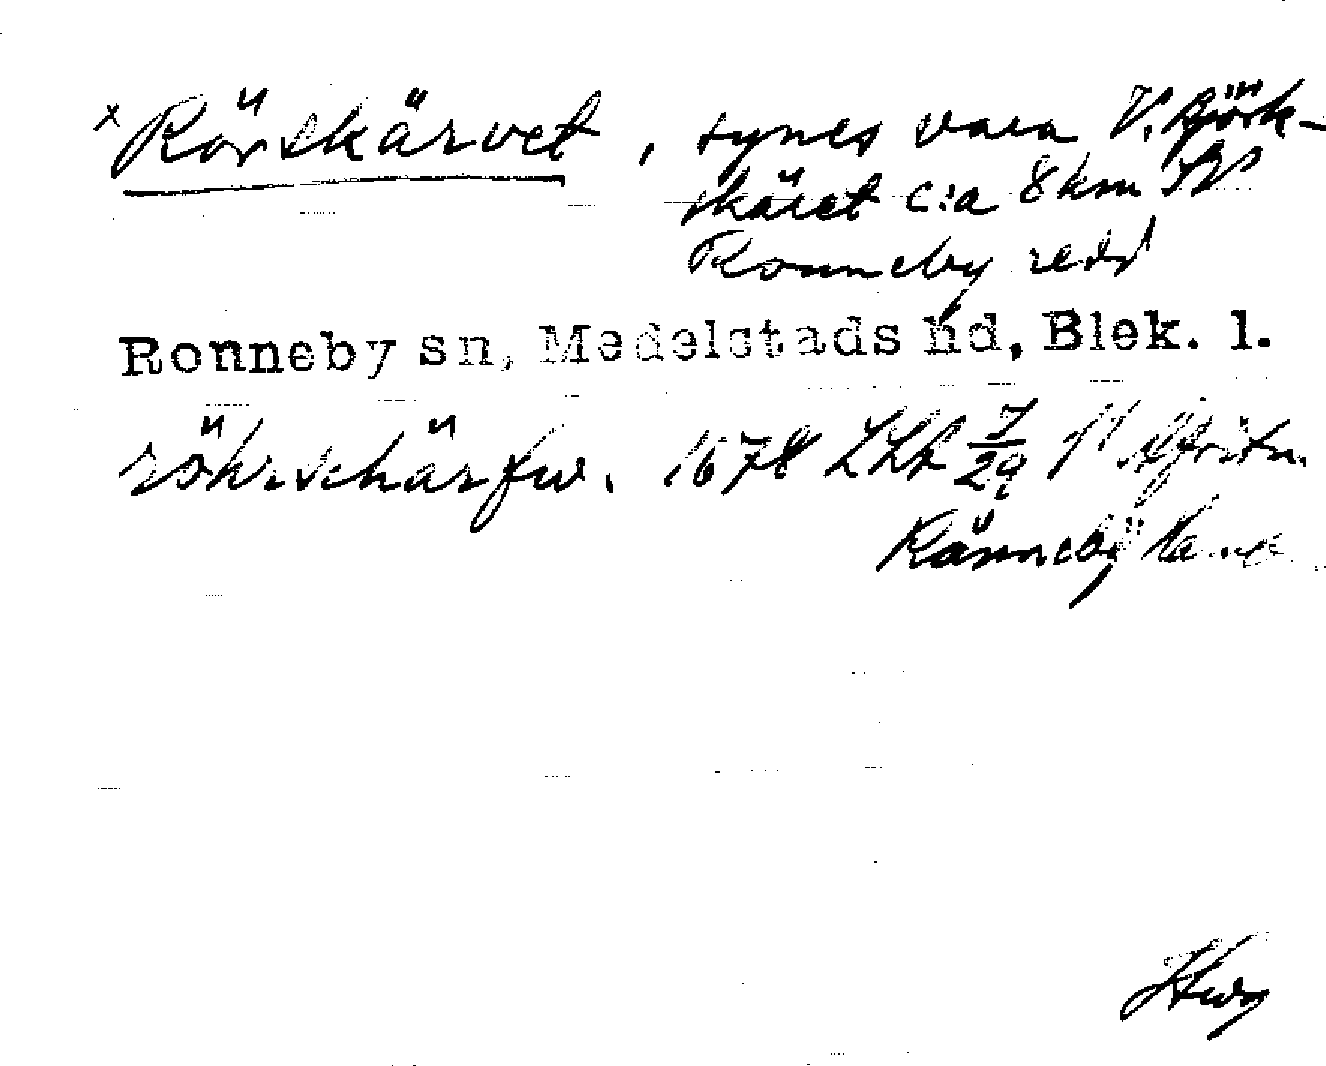 x Rörskärvet, synes vara V. Björk-
skäret c:a 8 km SV
Ronneby redd
Ronneby sn, Medelstads hd, Blek. l.
röhrschärfw. 1678 LLA 7/29
Rönneby